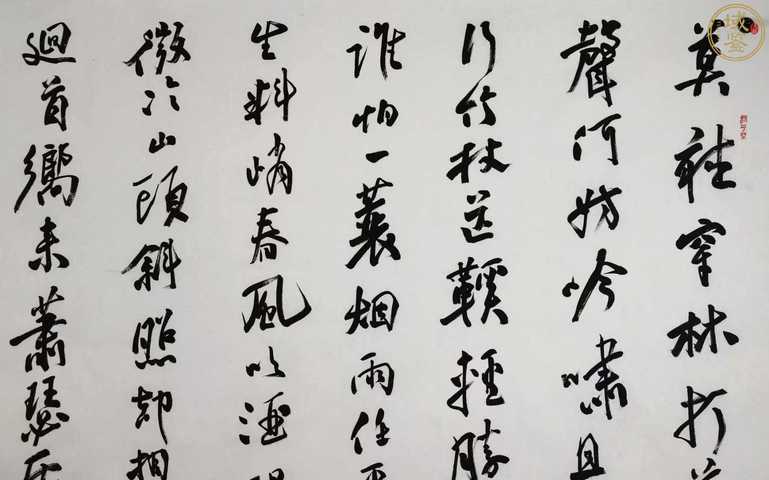 莫聽穿林打
聲何妨吟嘯且
行竹杖芒鞵輕勝
誰怕一蓑烟雨任平
生料峭春風吹酒
微冷山頭斜照却相
迴首嚮来蕭瑟
域鉴